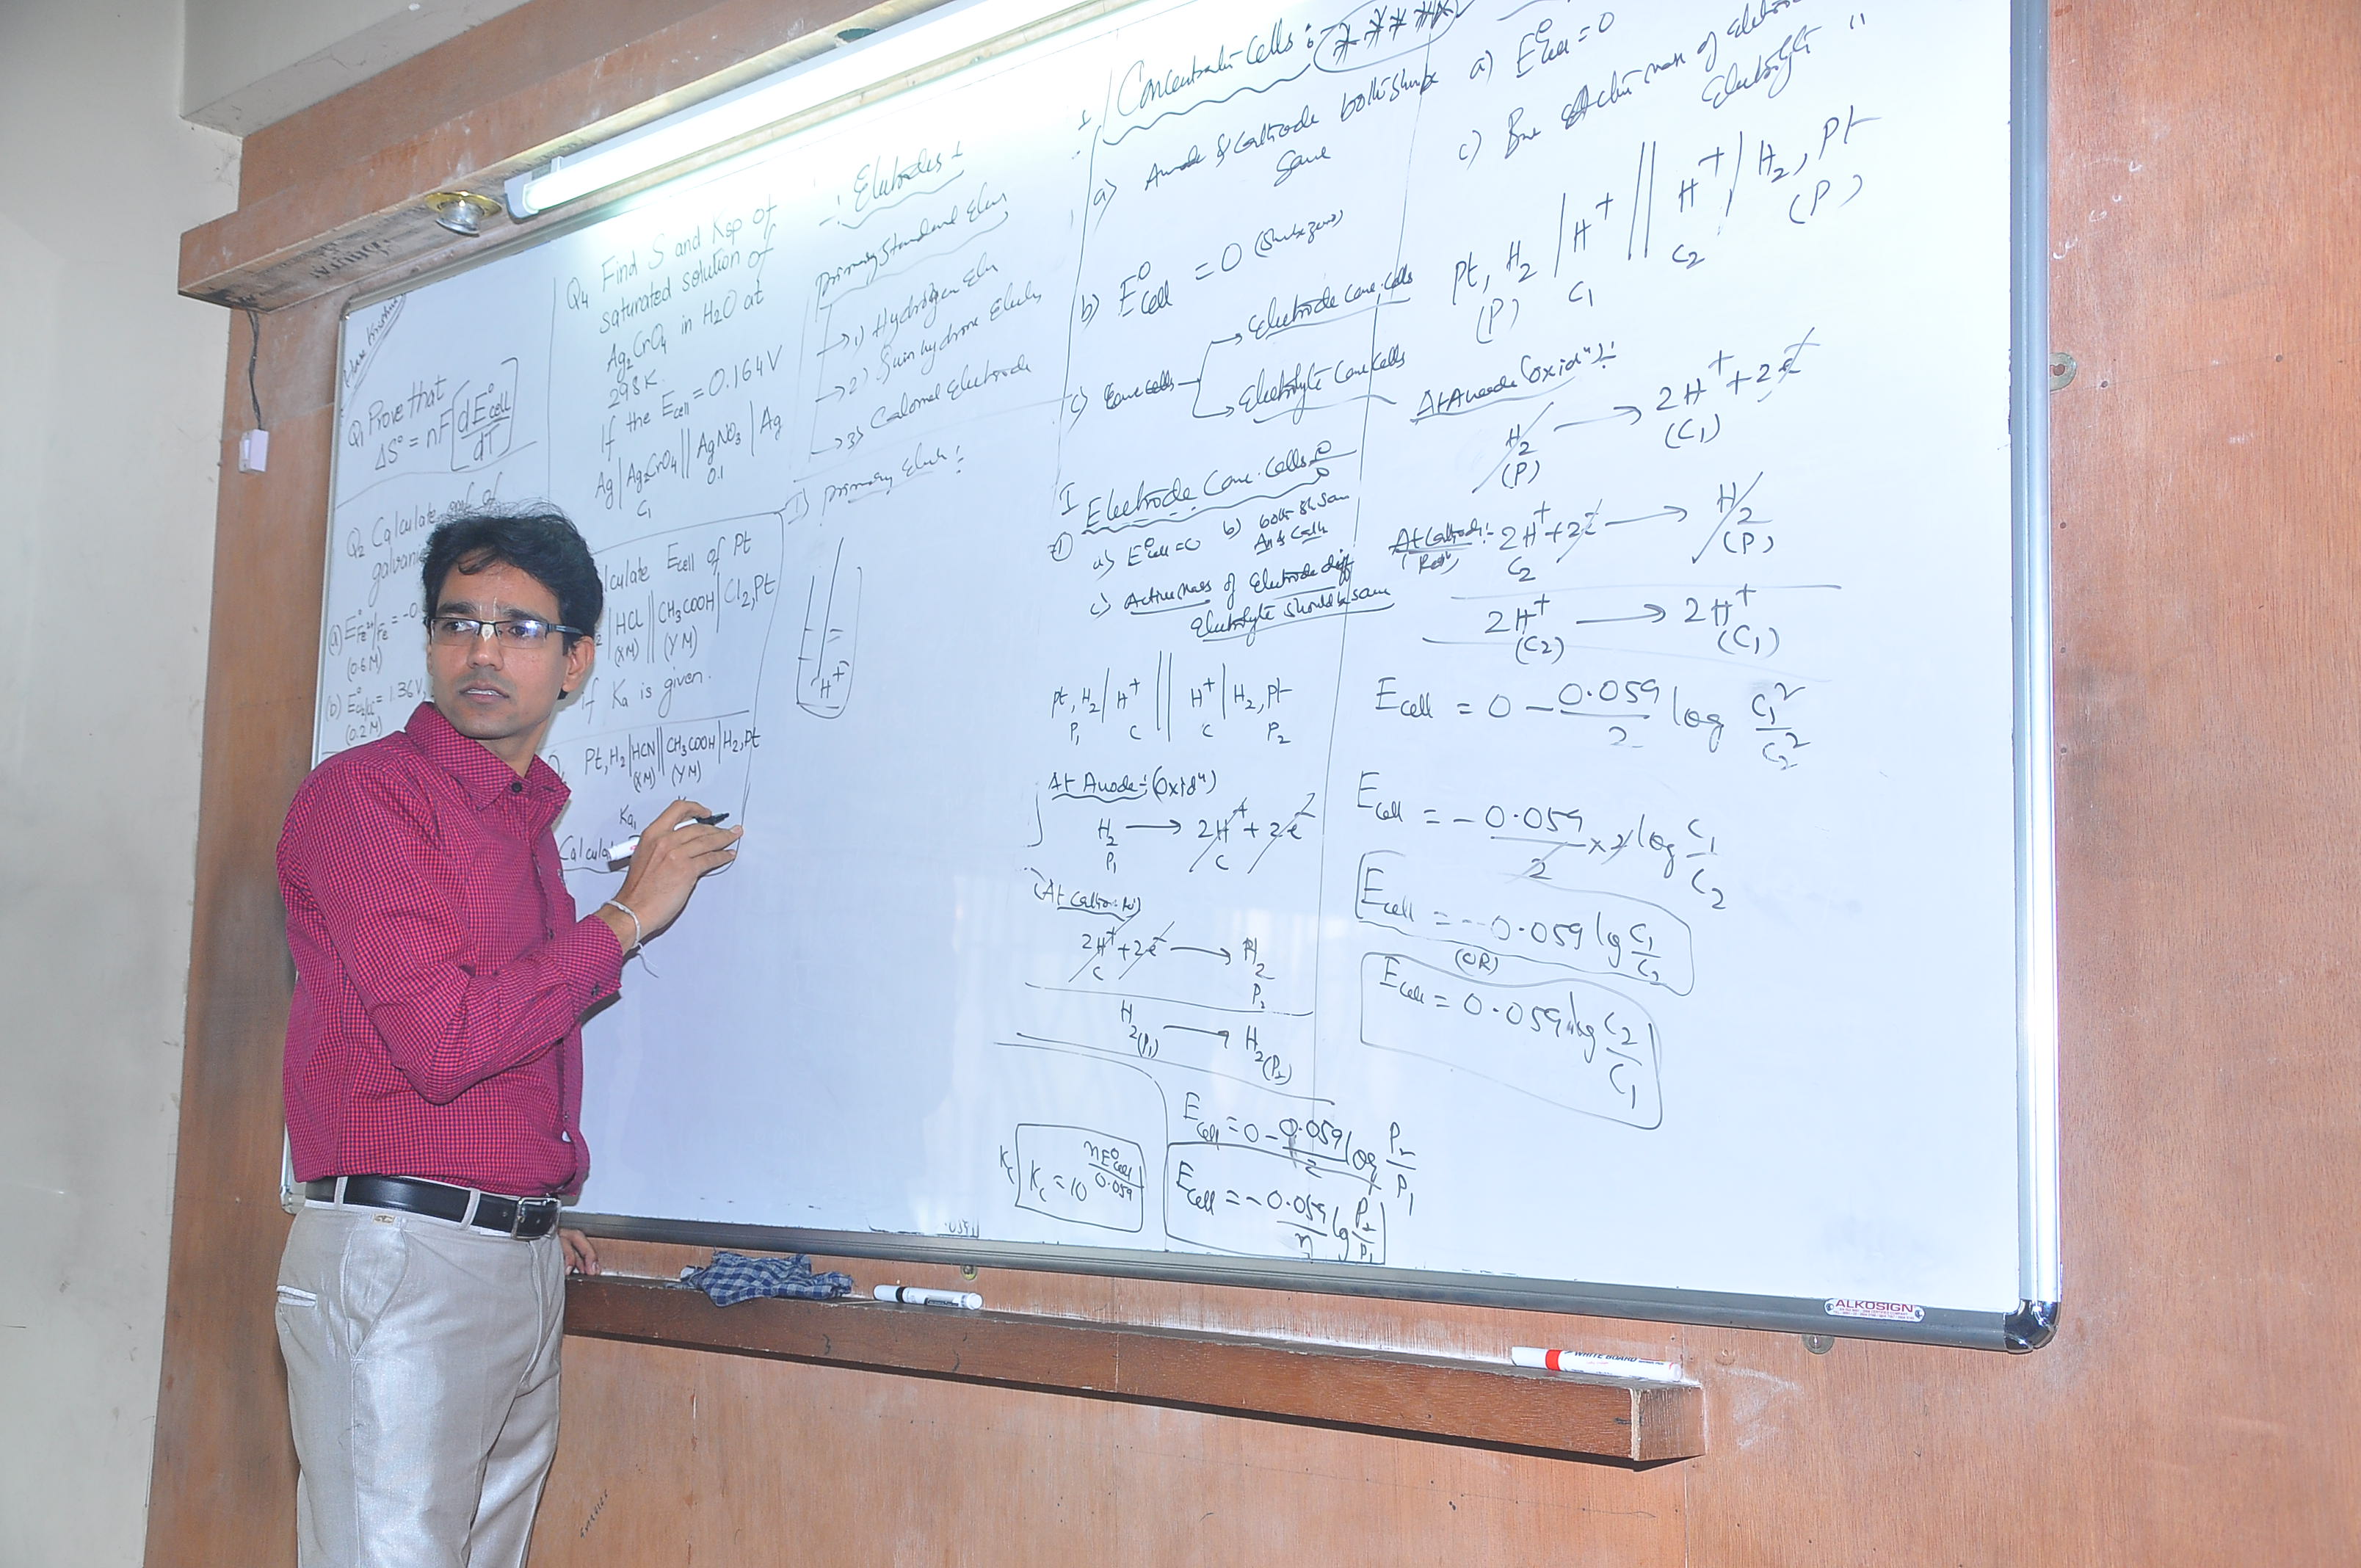 Q1 Prove that
ΔS° = nF [dE°cell / dT]
Q2 Calculate emf of
(a) E° Fe2+/Fe = -0
(0.6M)
(b) = 1.36V,
(0.2M)
Q4 Find S and Ksp of
saturated solution of
Ag2CrO4 in H2O at
298K.
If the Ecell = 0.164V
Ag | Ag2CrO4 || AgNO3 | Ag
C1 0.1
lculate Ecell of Pt
HCl || CH3COOH | Cl2, Pt
(XM) (YM)
If Ka is given.
Pt, H2 | HCN || CH3COOH | H2, Pt
(XM) (YM)
Ka1
Calcula
Electrodes
Primary Standard Elec
→ 1) Hydrogen Ele
→ 2)
→ 3) Calomel Electrode
1) Primary Elect :
H+
I Concentratn Cells :- ****
a) Anode & Cathode both should
Same
b) E°cell = 0
c) Conc cells
Electrode Conc. Cells
Electrolyte Conc Cells
I Electrode Conc. Cells
1
a) E°cell = 0 b) both sh Same
An & Cath
c) Active Mass of Electrode diff
Electrolyte should be same
Pt, H2 | H+ || H+ | H2, Pt
P1 C C P2
At Anode :- (Oxidn)
H2 → 2H+ + 2e-
P1 C
2H+ + 2e- → H2
C P2
H2(P1) → H2(P2)
Ecell = 0 - 0.059/2 log P2/P1
Ecell = - 0.059/n log P2/P1
Kc
Kc = 10 nE°cell/0.059
a) E°cell = 0
c) But Active mass of
Electrolyte "
Pt, H2 | H+ || H+ | H2, Pt
(P) C1 C2 (P)
At Anode (oxidn) :-
H2 → 2H+ + 2e-
(P) (C1)
At Cathode :- 2H+ + 2e- → H2
C2 (P)
2H+ → 2H+
(C2) (C1)
Ecell = 0 - 0.059/2 log C1²/C2²
Ecell = - 0.059/2 × 2 log C1/C2
Ecell = - 0.059 log C1/C2
(OR)
Ecell = 0.059 log C2/C1
ALKOSIGN
WHITE BOARD